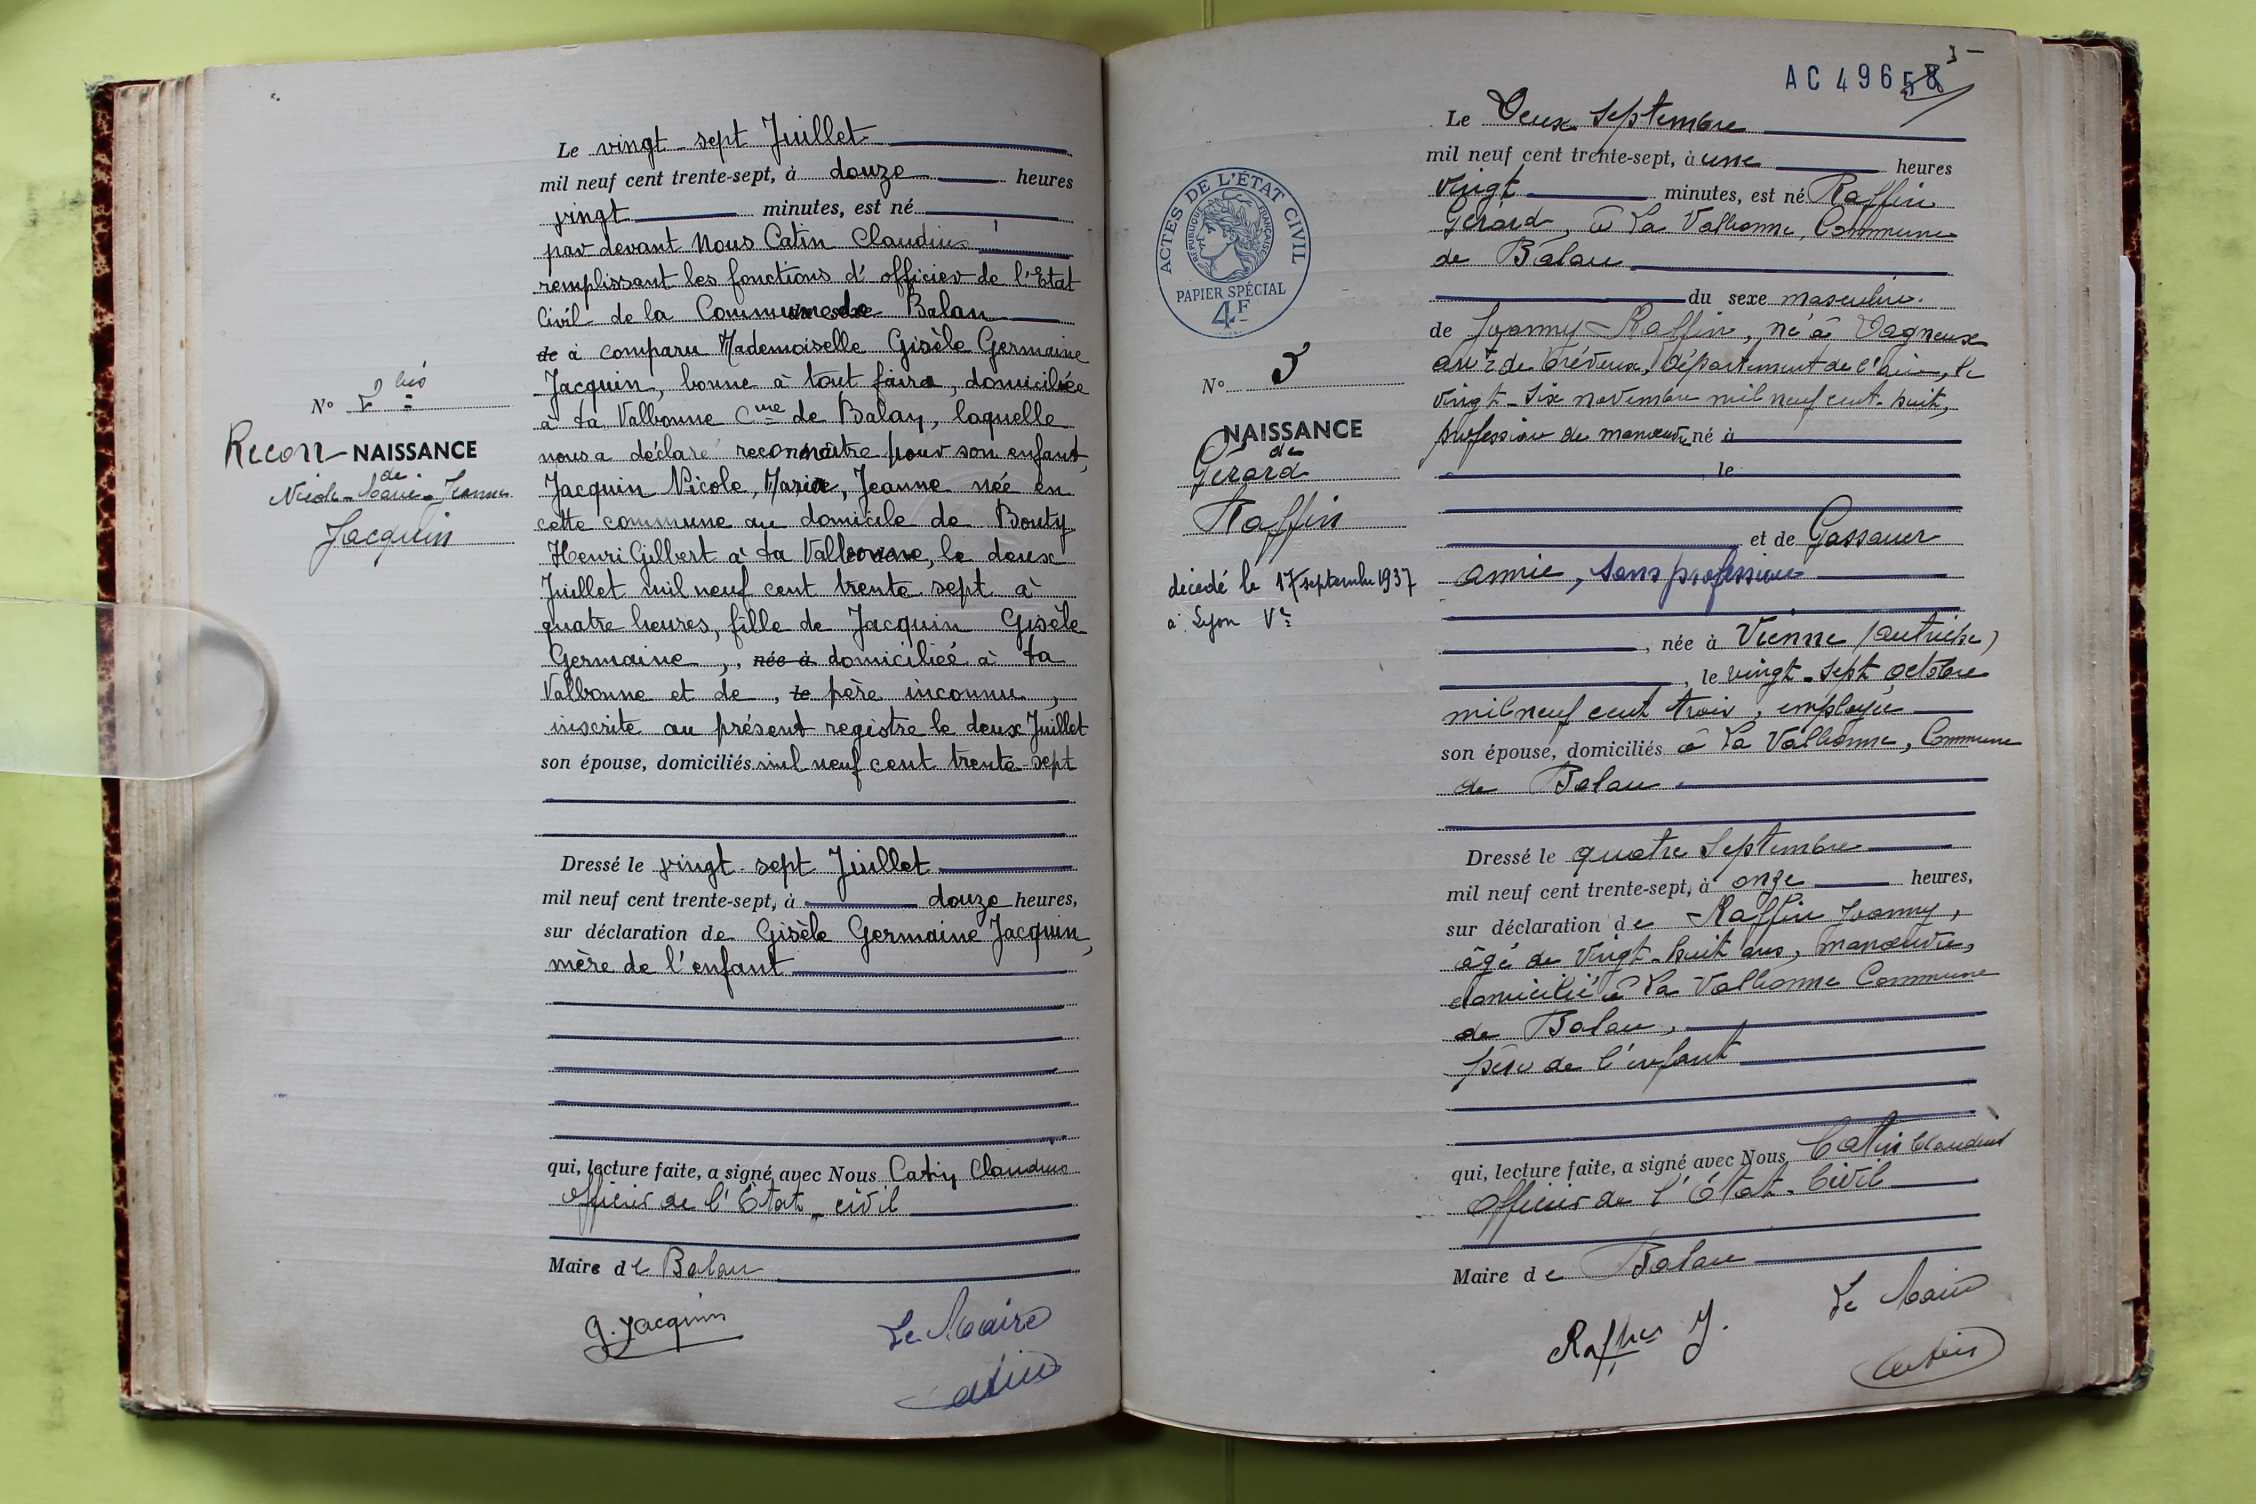 Le vingt-sept Juillet
mil neuf cent trente-sept, à douze heures
vingt minutes, est né
par devant Nous Catin Claudius
remplissant les fonctions d'officier de l'Etat
Civil de la Commune de Balan
de a comparu Mademoiselle Gisèle Germaine
Jacquin, bonne à tout faire, domiciliée
à La Valbonne Cne de Balan, laquelle
nous a déclaré reconnaître pour son enfant,
Jacquin Nicole, Marie, Jeanne née en
cette commune au domicile de Bouty
Henri Gilbert à La Valbonne, le deux
Juillet mil neuf cent trente sept à
quatre heures, fille de Jacquin Gisèle
Germaine, née à domiciliée à La
Valbonne et de, le père inconnu,
inscrite au présent registre le deux Juillet
son épouse, domiciliés mil neuf cent trente-sept
Dressé le vingt sept Juillet
mil neuf cent trente-sept, à douze heures,
sur déclaration de Gisèle Germaine Jacquin,
mère de l'enfant
qui, lecture faite, a signé avec Nous Catin Claudius
Officier de l'État-civil
Maire de Balan
G. Jacquin
Le Maire
Catin
No bis
Recon NAISSANCE
de
Nicole-Marie-Jeanne
Jacquin
AC 49658
Le Deux Septembre
mil neuf cent trente-sept, à une heures
vingt minutes, est né Raffin
Gérard, à La Valbonne, Commune
de Balan
du sexe masculin.
de Joanny Raffin, né à Dagneux
arrt de Trévoux, département de l'Ain, le
vingt-six novembre mil neuf cent huit,
profession de manœuvre né à
le
et de Gassauer
Annie, sans profession
, née à Vienne (Autriche)
, le vingt-sept octobre
mil neuf cent trois, employée
son épouse, domiciliés à La Valbonne, Commune
de Balan
Dressé le quatre Septembre
mil neuf cent trente-sept, à onze heures,
sur déclaration de Raffin Joanny,
âgé de vingt-huit ans, manœuvre,
domicilié à La Valbonne Commune
de Balan,
père de l'enfant
qui, lecture faite, a signé avec Nous Catin Claudius
Officier de l'État-Civil
Maire de Balan
Raffin J.
Le Maire
Catin
ACTES DE L'ÉTAT CIVIL
RÉPUBLIQUE FRANÇAISE
PAPIER SPÉCIAL
4F
No 5
NAISSANCE
de
Gérard
Raffin
décédé le 17 septembre 1937
à Lyon Ve